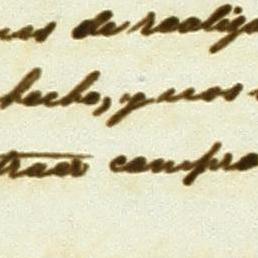 de realiza
hecho, y nos
traer compro